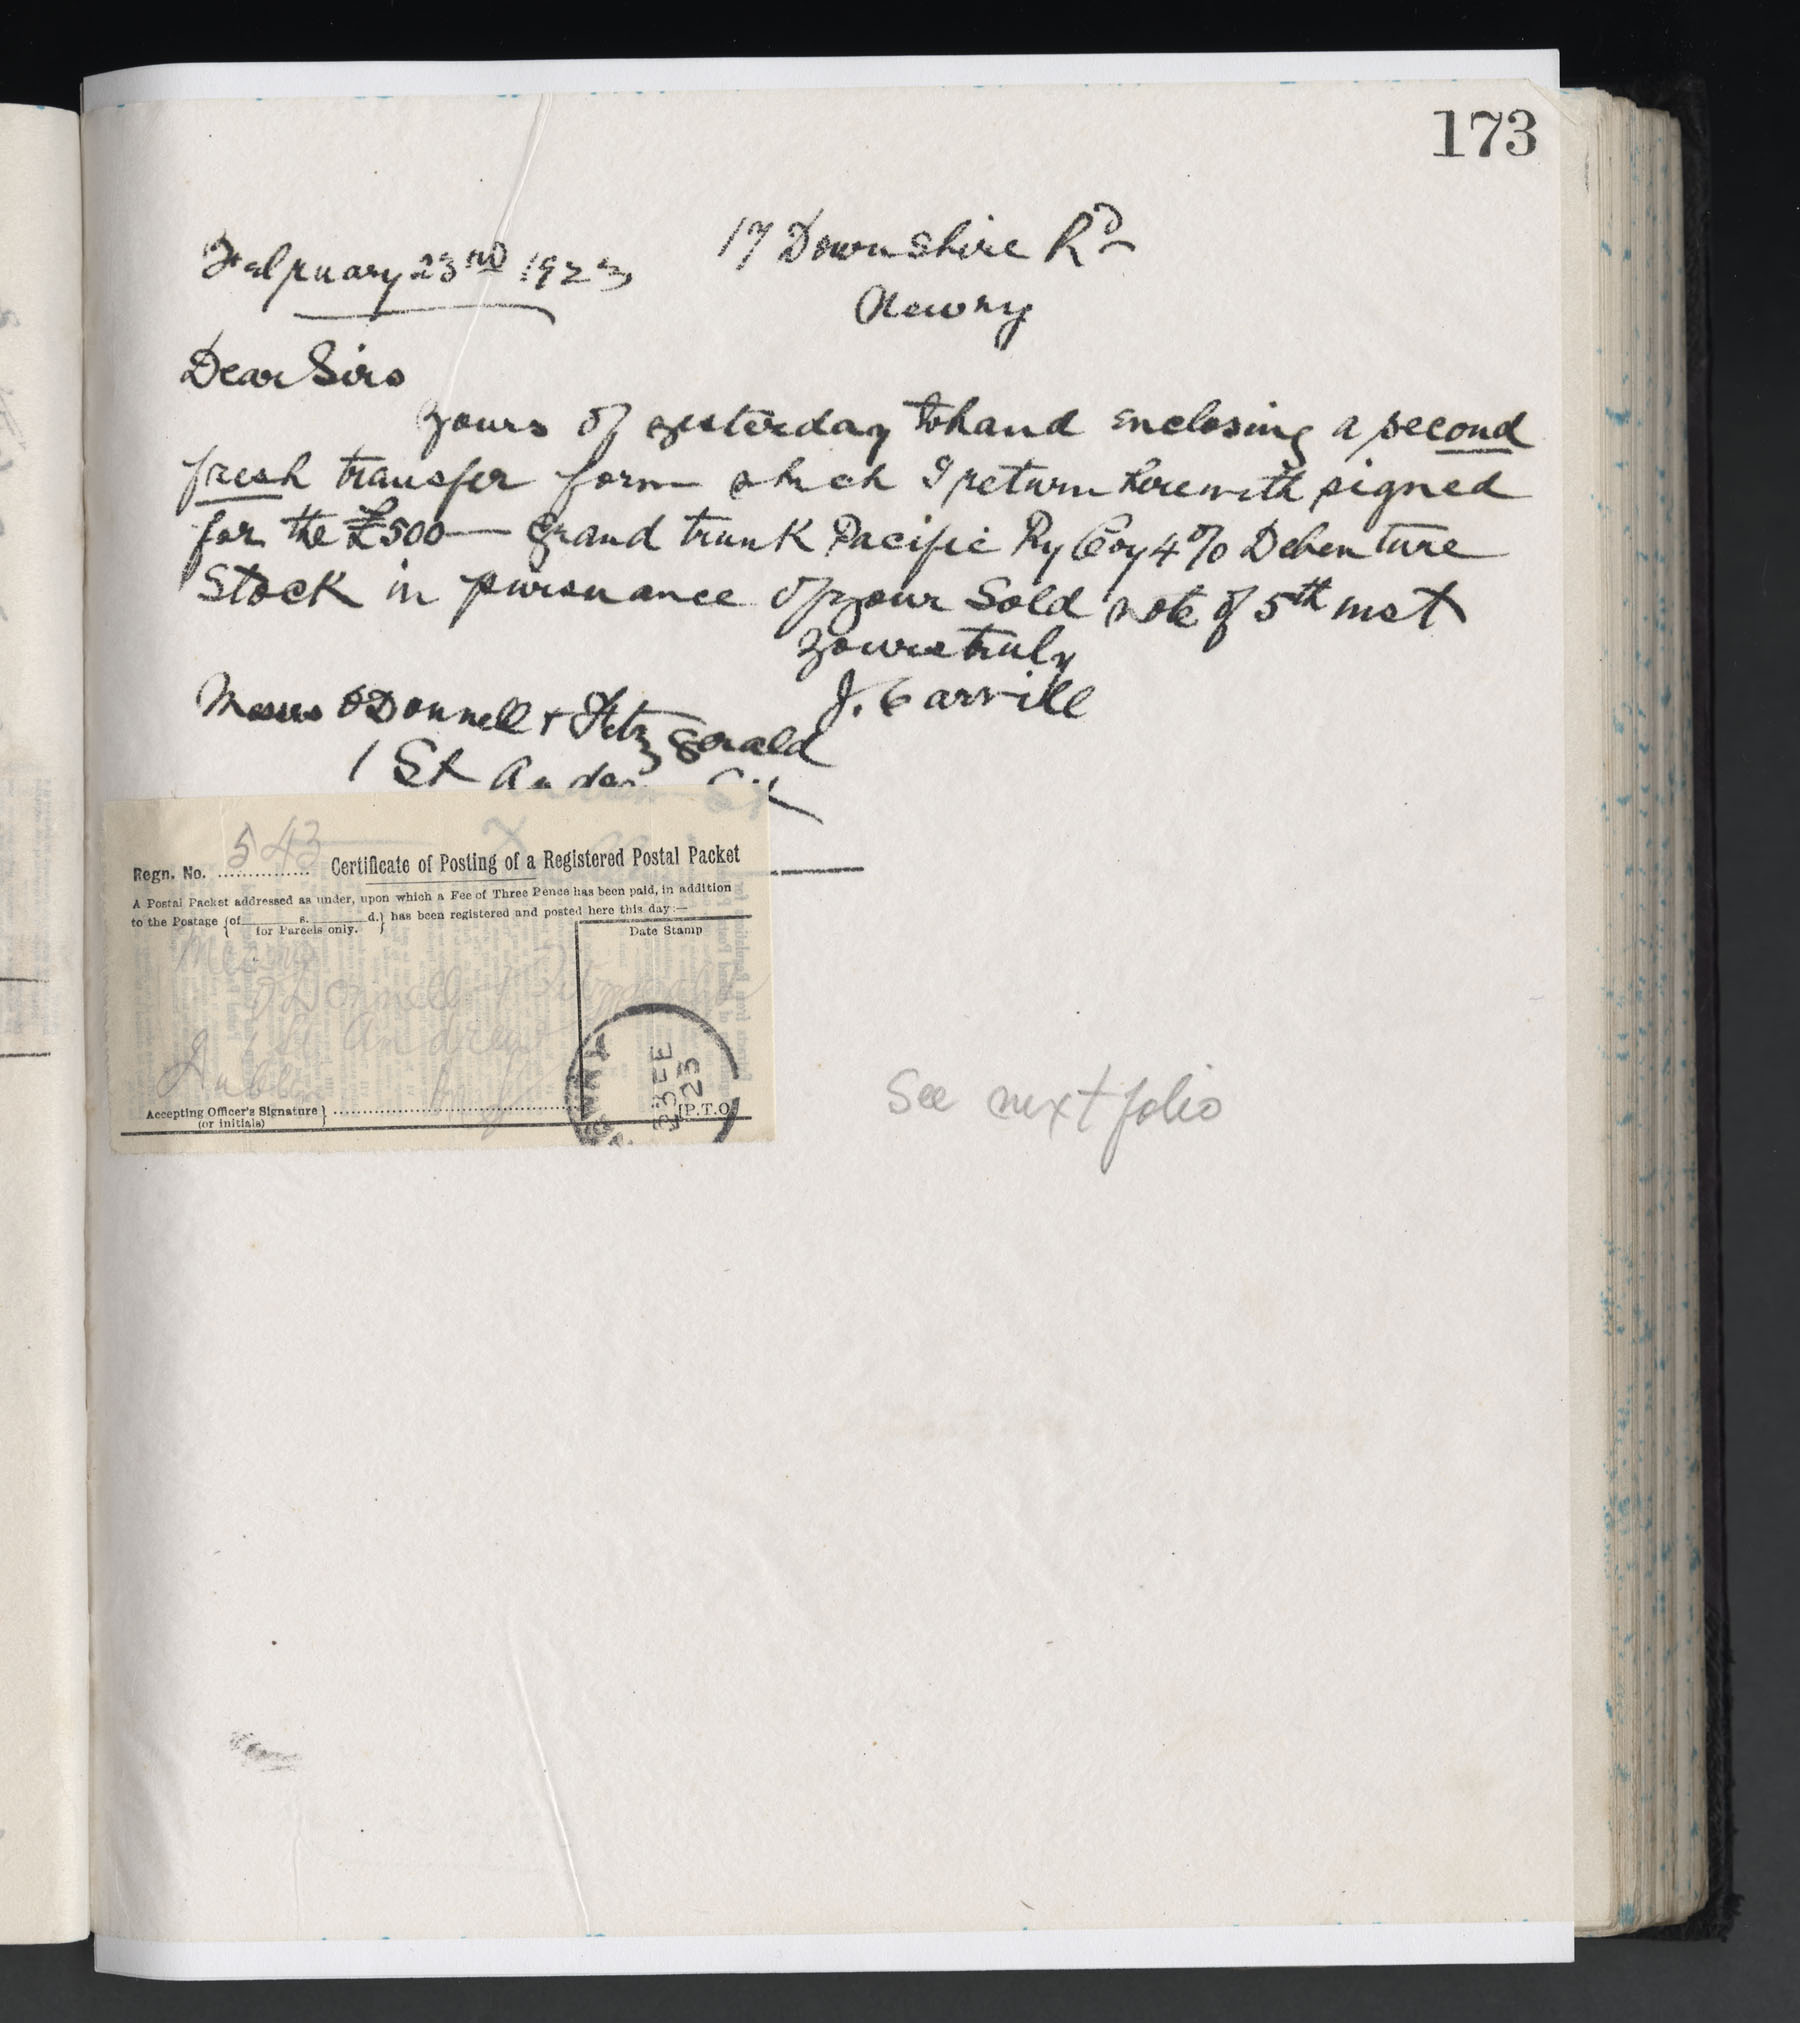 173
February 23rd 1923
17 Downshire Rd
Newry
Dear Sirs
yours of yesterday to hand enclosing a second
fresh transfer form which I return herewith signed
for the £500— Grand trunk Pacific Ry Coy 4% Debenture
Stock in pursuance of your Sold note of 5th inst
yours truly
J. Carvill
Messrs O'Donnell & Fitzgerald
1 St Andrew
Regn. No. 543 Certificate of Posting of a Registered Postal Packet
A Postal Packet addressed as under, upon which a Fee of Three Pence has been paid, in addition
to the Postage {of s. d.} has been registered and posted here this day:—
for Parcels only.
Date Stamp
Messrs
O'Donnell & Fitzgerald
1 St Andrew
Dublin
23 FE
23
Accepting Officer's Signature}
(or initials)
[P.T.O.
See next folio